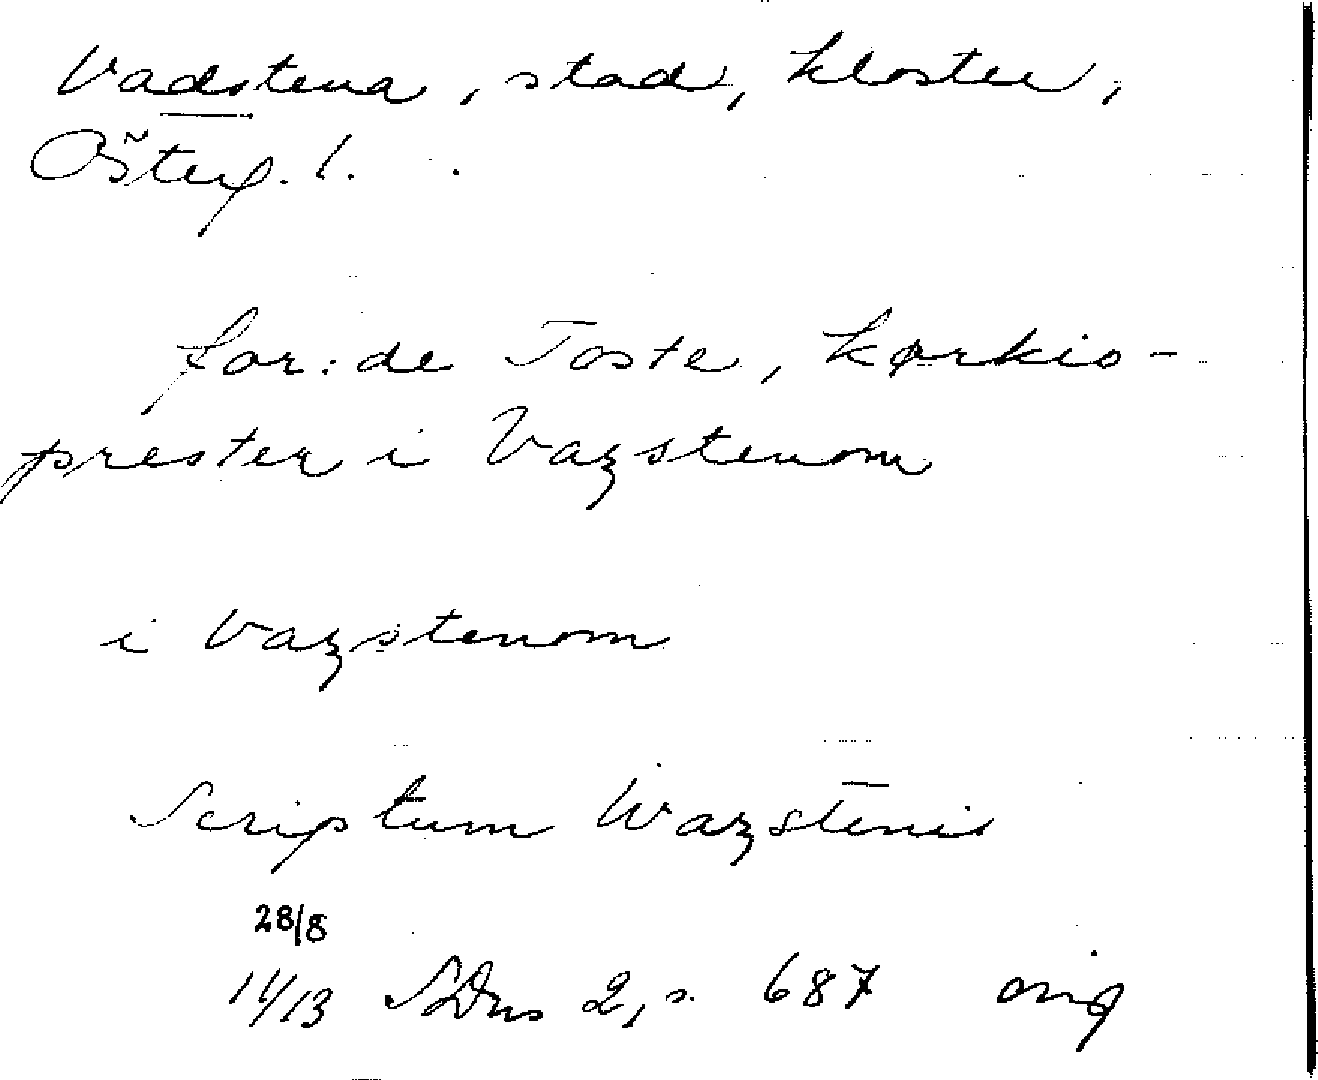 Vadstena, stad, kloster,
Österg. l.
for:de Toste, kørkio-
prester i Vazstenom
i Vazstenom
Scriptum Wazstenis
28/8
1413 SDns 2, s. 687 orig